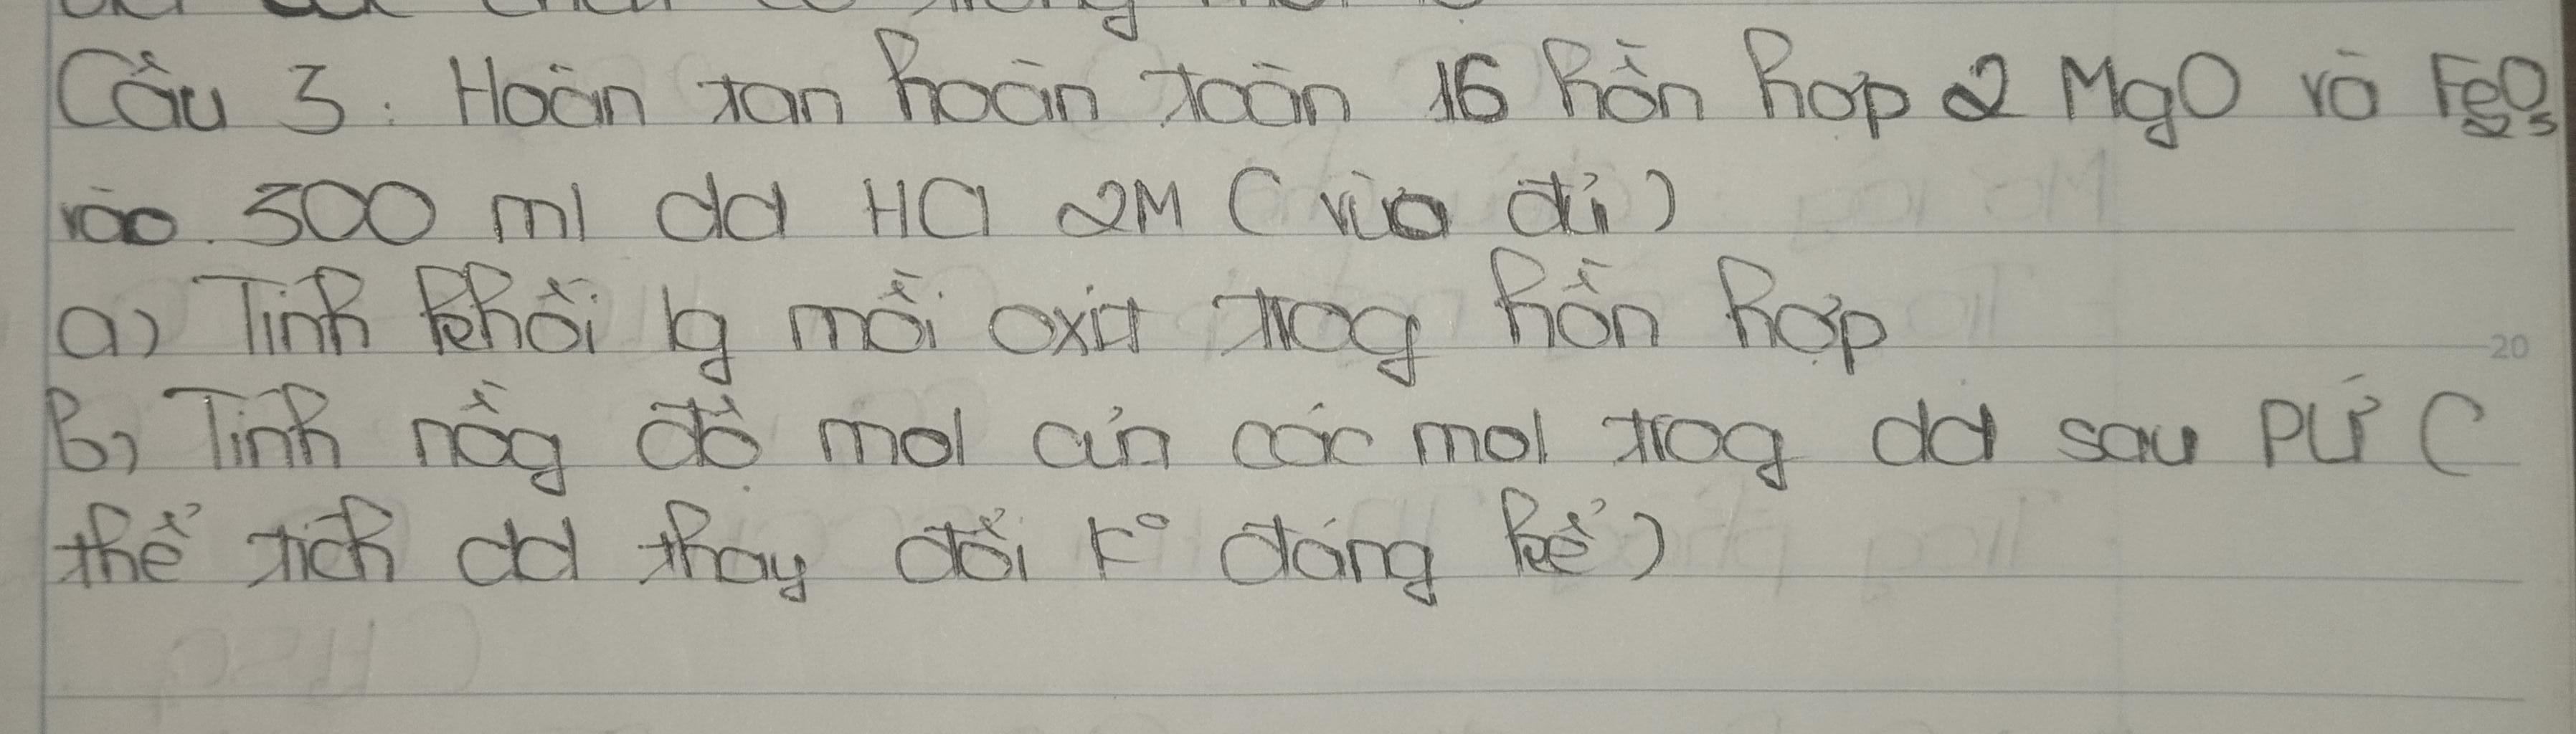 Câu 3: Hoàn tan hoàn toàn 16 hỗn hợp 2 MgO và Fe2O3
vào 300 ml dd HCl 2M (vừa đủ)
a) Tính khối lg mỗi oxit trog hỗn hợp
b) Tính nồg độ mol của các mol trog dd sau PƯ (
thể tích dd thay đổi k° đáng kể)
20